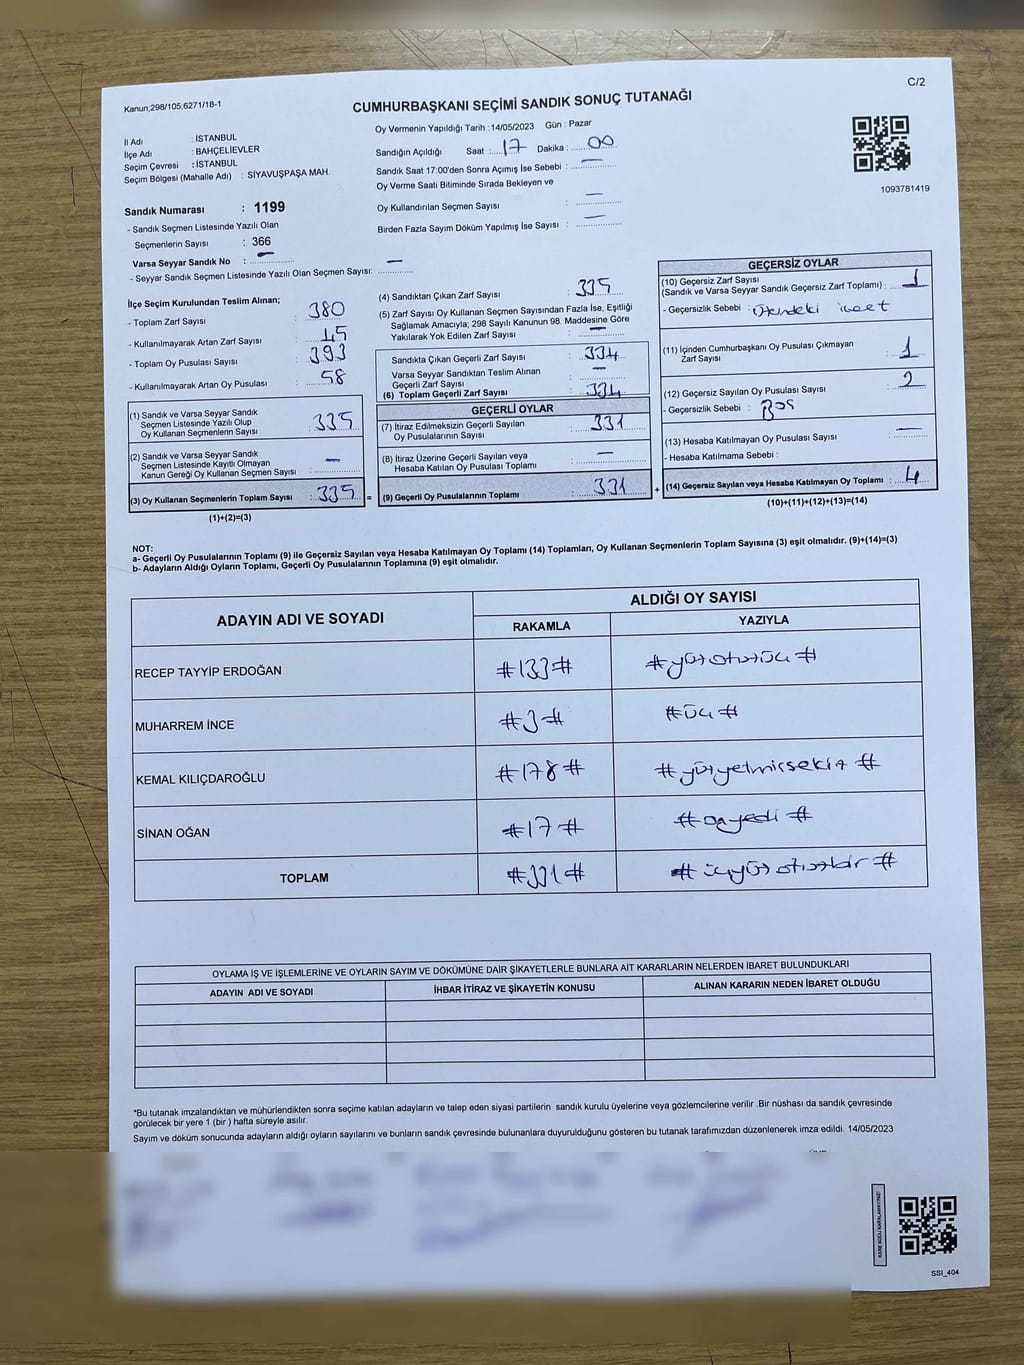 C/2
Kanun;298/105,6271/18-1
CUMHURBAŞKANI SEÇİMİ SANDIK SONUÇ TUTANAĞI
İl Adı : İSTANBUL
İlçe Adı : BAHÇELİEVLER
Seçim Çevresi : İSTANBUL
Seçim Bölgesi (Mahalle Adı) : SİYAVUŞPAŞA MAH.
Oy Vermenin Yapıldığı Tarih :14/05/2023 Gün : Pazar
Sandığın Açıldığı Saat : 17 Dakika : 00
Sandık Saat 17:00'den Sonra Açımış İse Sebebi : —
Oy Verme Saati Bitiminde Sırada Bekleyen ve
Oy Kullandırılan Seçmen Sayısı : —
Birden Fazla Sayım Döküm Yapılmış İse Sayısı : —
1093781419
Sandık Numarası : 1199
- Sandık Seçmen Listesinde Yazılı Olan
Seçmenlerin Sayısı : 366
Varsa Seyyar Sandık No : —
- Seyyar Sandık Seçmen Listesinde Yazılı Olan Seçmen Sayısı: —
İlçe Seçim Kurulundan Teslim Alınan;
- Toplam Zarf Sayısı : 380
- Kullanılmayarak Artan Zarf Sayısı : 45
- Toplam Oy Pusulası Sayısı : 393
- Kullanılmayarak Artan Oy Pusulası : 58
(1) Sandık ve Varsa Seyyar Sandık
Seçmen Listesinde Yazılı Olup
Oy Kullanan Seçmenlerin Sayısı : 335
(2) Sandık ve Varsa Seyyar Sandık
Seçmen Listesinde Kayıtlı Olmayan
Kanun Gereği Oy Kullanan Seçmen Sayısı : —
(3) Oy Kullanan Seçmenlerin Toplam Sayısı : 335 =
(1)+(2)=(3)
(4) Sandıktan Çıkan Zarf Sayısı : 335
(5) Zarf Sayısı Oy Kullanan Seçmen Sayısından Fazla İse, Eşitliği
Sağlamak Amacıyla; 298 Sayılı Kanunun 98. Maddesine Göre
Yakılarak Yok Edilen Zarf Sayısı : —
Sandıkta Çıkan Geçerli Zarf Sayısı : 334
Varsa Seyyar Sandıktan Teslim Alınan
Geçerli Zarf Sayısı : —
(6) Toplam Geçerli Zarf Sayısı : 334
GEÇERLİ OYLAR
(7) İtiraz Edilmeksizin Geçerli Sayılan
Oy Pusulalarının Sayısı : 331
(8) İtiraz Üzerine Geçerli Sayılan veya
Hesaba Katılan Oy Pusulası Toplamı : —
(9) Geçerli Oy Pusulalarının Toplamı : 331 +
GEÇERSİZ OYLAR
(10) Geçersiz Zarf Sayısı
(Sandık ve Varsa Seyyar Sandık Geçersiz Zarf Toplamı) : 1
- Geçersizlik Sebebi : Üzerindeki
(11) İçinden Cumhurbaşkanı Oy Pusulası Çıkmayan
Zarf Sayısı : 1
(12) Geçersiz Sayılan Oy Pusulası Sayısı : 2
- Geçersizlik Sebebi : Boş
(13) Hesaba Katılmayan Oy Pusulası Sayısı : —
- Hesaba Katılmama Sebebi :
(14) Geçersiz Sayılan veya Hesaba Katılmayan Oy Toplamı : 4
(10)+(11)+(12)+(13)=(14)
NOT:
a- Geçerli Oy Pusulalarının Toplamı (9) ile Geçersiz Sayılan veya Hesaba Katılmayan Oy Toplamı (14) Toplamları, Oy Kullanan Seçmenlerin Toplam Sayısına (3) eşit olmalıdır. (9)+(14)=(3)
b- Adayların Aldığı Oyların Toplamı, Geçerli Oy Pusulalarının Toplamına (9) eşit olmalıdır.
ADAYIN ADI VE SOYADI ALDIĞI OY SAYISI
RAKAMLA YAZIYLA
RECEP TAYYİP ERDOĞAN #133# #yüzotuzüç#
MUHARREM İNCE #3# #üç#
KEMAL KILIÇDAROĞLU #178# #yüzyetmişsekiz#
SİNAN OĞAN #17# #onyedi#
TOPLAM #331# #üçyüzotuzbir#
OYLAMA İŞ VE İŞLEMLERİNE VE OYLARIN SAYIM VE DÖKÜMÜNE DAİR ŞİKAYETLERLE BUNLARA AİT KARARLARIN NELERDEN İBARET BULUNDUKLARI
ADAYIN ADI VE SOYADI İHBAR İTİRAZ VE ŞİKAYETİN KONUSU ALINAN KARARIN NEDEN İBARET OLDUĞU
*Bu tutanak imzalandıktan ve mühürlendikten sonra seçime katılan adayların ve talep eden siyasi partilerin sandık kurulu üyelerine veya gözlemcilerine verilir .Bir nüshası da sandık çevresinde
görülecek bir yere 1 (bir ) hafta süreyle asılır.
Sayım ve döküm sonucunda adayların aldığı oyların sayılarını ve bunların sandık çevresinde bulunanlara duyurulduğunu gösteren bu tutanak tarafımızdan düzenlenerek imza edildi. 14/05/2023
SSI_404